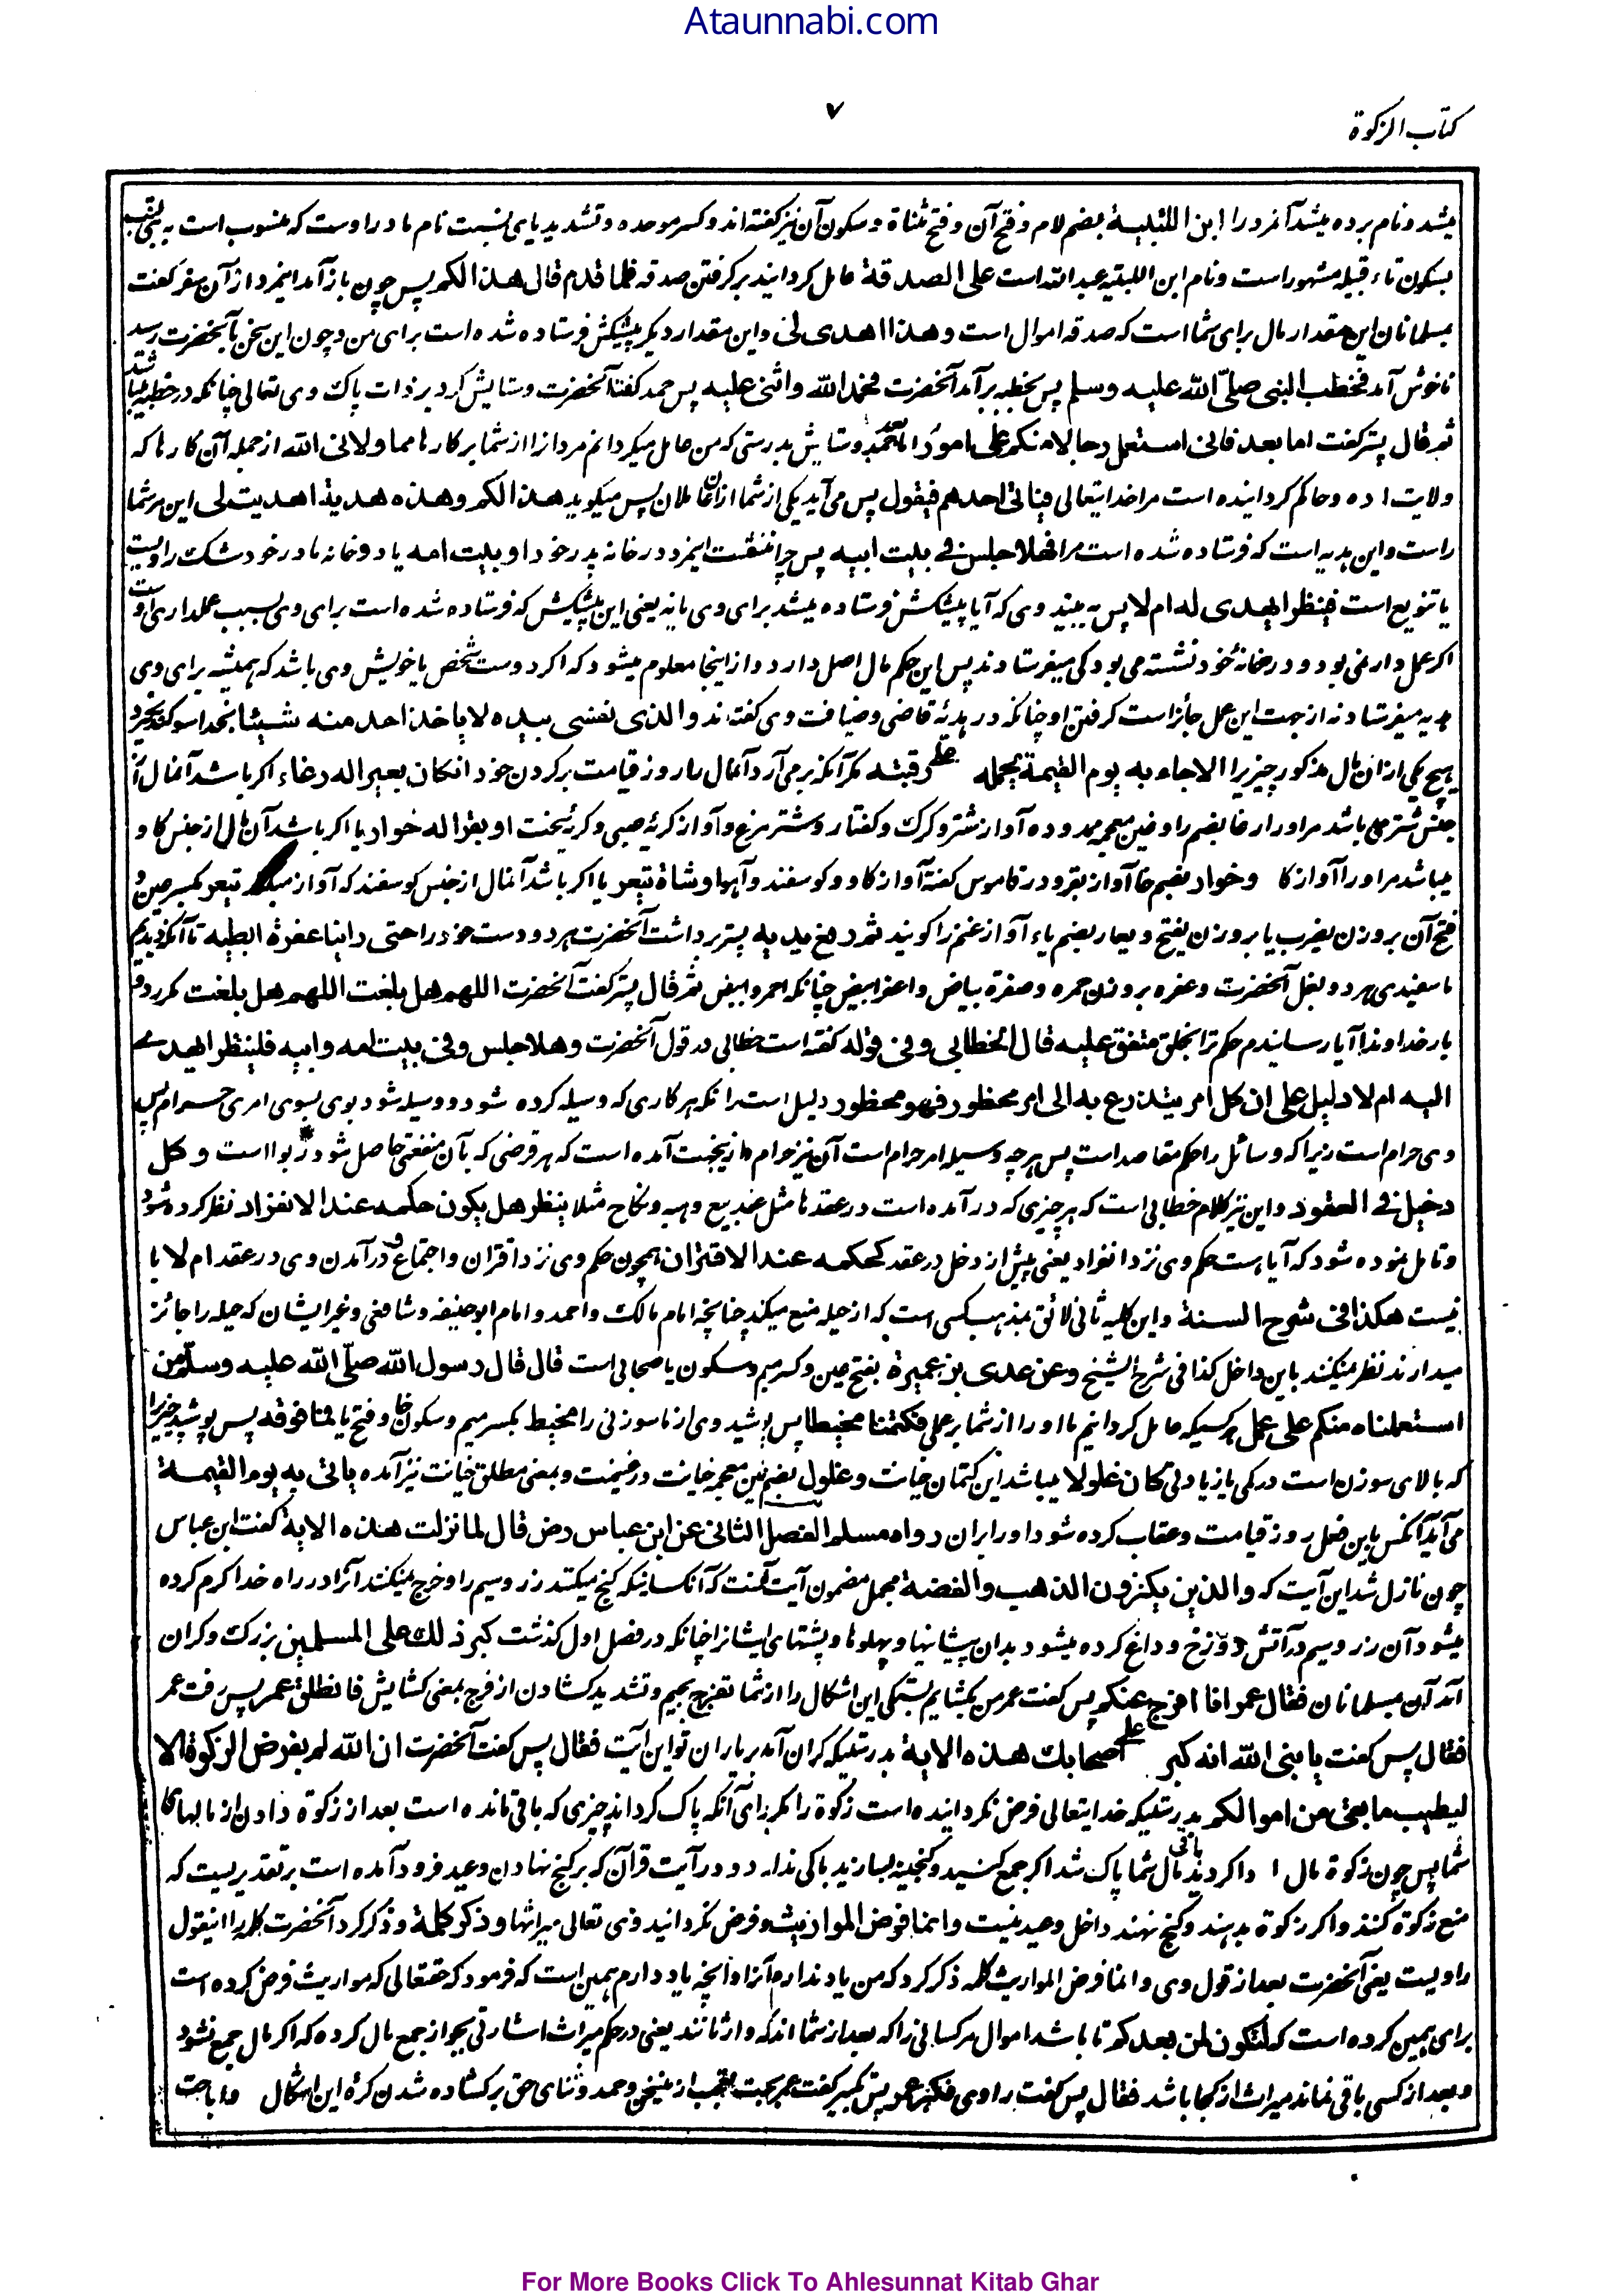 Ataunnabi.com
۷
کتاب الزکوة
میشد و نام برده میشد آنمرد را ابن اللتبیة بضم لام و فتح آن و فتح مثناة و سکون آن نیز گفته اند و کسر موحده و تشدید یای نسبت نام مادر اوست که منسوب است به بنی لتب
بسکون تاء قبیله مشهور است و نام ابن اللتبیه عبد الله است علی الصدقة عامل گردانید بر گرفتن صدقه فلما قدم قال هذا لکم پس چون باز آمد اینمرد از آن سفر گفت
بمسلمانان این مقدار مال برای شما است که صدقه اموال است و هذا اهدی لی و این مقدار دیگر پیشکش فرستاده شده است برای من و چون این سخن بآنحضرت رسید
ناخوش آمد فخطب النبی صلی الله علیه وسلم پس بخطبه برآمد آنحضرت فحمد الله واثنی علیه پس حمد گفت آنحضرت و ستایش کرد بر ذات پاک وی تعالی چنانکه در خطبه میباشد
ثم قال پستر گفت اما بعد فانی استعمل رجالا منکم علی امور بدرستی که من عامل میگردانم مردان را از شما بر کارها مما ولانی الله از جمله آن کارها که
ولایت داده و حاکم گردانیده است مرا خدایتعالی فیاتی احدهم فیقول پس می آید یکی از شما ازان عاملان پس میگوید هذا لکم وهذه هدیة اهدیت لی این مر شما
راست و این هدیه است که فرستاده شده است مرا فهلا جلس فی بیت ابیه پس چرا ننشست اینمرد در خانه پدر خود او بیت امه یا در خانه مادر خود شک راویست
یا تنویع است فینظر ایهدی له ام لا پس به بیند وی که آیا پیشکش فرستاده میشد برای وی یا نه یعنی این پیشکش که فرستاده شده است برای وی بسبب عملداری اوست
اگر عمل دار نمی بود و در خانهٔ خود نشسته می بود کی میفرستادند پس این حکم مال اصل دارد و از اینجا معلوم میشود که اگر دوست شخص یا خویش وی باشد که همیشه برای وی
هدیه میفرستاد نه از جهت این عمل جائز است گرفتن او چنانکه در هدیهٔ قاضی و ضیافت وی گفته اند والذی نفسی بیده لا یاخذ احد منه شیئا بخدا سوگند نگیرد
هیچ یکی ازان مال مذکور چیزیرا الا جاء به یوم القیمة یحمله علی رقبته مگر آنکه بر می آرد آنمال را روز قیامت بر گردن خود ان کان بعیرا له رغاء اگر باشد آنمال از
جنس شتر می باشد مر اورا رغا بضم را و غین معجمه ممدوده آواز شتر و گرک و کفتار و شتر مرغ و آواز گریهٔ صبی و گریهٔ سخت او بقرا له خوار یا اگر باشد آن مال از جنس گاو
میباشد مر اورا آواز گا وخوار بضم خا آواز بقر و در قاموس گفته آواز گاو و گوسفند و آهو او شاة تیعر یا اگر باشد آنمال از جنس گوسفند که آواز میکند تیعر بکسر عین و
فتح آن بر وزن یضرب یا بر وزن یفتح و یعار بضم یاء آواز غنم را گویند ثم رفع یدیه پستر برداشت آنحضرت هر دو دست خود را حتی راینا عفرة ابطیه تا آنکه دیدیم
ما سفیدی هر دو بغل آنحضرت و عفره بر وزن حمره و صفرة بیاض و اعفر ابیض چنانکه احمر و ابیض ثم قال پستر گفت آنحضرت اللهم هل بلغت اللهم هل بلغت مکرر دو
بار خداوندا آیا رسانیدم حکم ترا بخلق متفق علیه قال الخطابی وفی قوله گفته است خطابی در قول آنحضرت وهلا جلس وفی بیت امه وابیه فلینظر ایهدی
الیه ام لا دلیل علی ان کل امر یتذرع به الی امر محظور فهو محظور دلیل است بر آنکه هر کاری که وسیله کرده شود و وسیله شود بوی بسوی امری حرام پس
وی حرام است زیرا که وسائل را حکم مقاصد است پس هر چه وسیله امر حرام است آن نیز حرام و ازینجهت آمده است که هر قرضی که بآن منفعتی حاصل شود ربوا است وکل
دخیل فی العقود و این نیز کلام خطابی است که هر چیزی که در آمده است در عقدها مثل عقد بیع و هبه و نکاح مثلا ینظر هل یکون حکمه عند الانفراد نظر کرده شود
و تامل نموده شود که آیا هست حکم وی نزد انفراد یعنی پیش از دخل در عقد کحکمه عند الاقتران همچون حکم وی نزد اقتران و اجتماع و در آمدن وی در عقد ام لا یا
نیست هکذا فی شرح السنة و این کلیه ثانی لائق بمذهب کسی است که از حیله منع میکند چنانچه امام مالک و احمد و امام ابو حنیفه و شافعی و غیر ایشان که حیله را جائز
میدارند نظر نمیکنند باین داخل کذا فی شرح الشیخ وعن عدی بن عمیرة بفتح عین و کسر میم و سکون یا صحابی است قال قال رسول الله صلی الله علیه وسلم من
استعملناه منکم علی عمل هر کسیکه عامل گردانیم ما او را از شما بر عملی فکتمنا مخیطا پس پوشید وی از ما سوزنی را مخیط بکسر میم و سکون خا و فتح یا فما فوقه پس پوشید چیزیرا
که بالای سوزن است در کمی یا زیادتی کان غلولا میباشد این کتمان خیانت و غلول بضم غین معجمه خیانت در غنیمت و بمعنی مطلق خیانت نیز آمده یاتی به یوم القیمة
می آید آنکس باین فعل روز قیامت و عقاب کرده شود او را بران رواه مسلم الفصل الثانی عن ابن عباس رض قال لما نزلت هذه الایة گفت ابن عباس
چون نازل شد این آیت که والذین یکنزون الذهب والفضة مجمل مضمون آیت آنست که آنکسانیکه گنج میکنند زر و سیم را و خرج نمیکنند آنرا در راه خدا گرم کرده
میشود آن زر و سیم در آتش دوزخ و داغ کرده میشود بدان پیشانیها و پهلوها و پشتهای ایشانرا چنانکه در فصل اول گذشت کبر ذلک علی المسلمین بزرگ و گران
آمد آن بمسلمانان فقال عمر انا افرج عنکم پس گفت عمر من بکشایم بستگی این اشکال را از شما تفریج بجیم و تشدید کشادن از فرج بمعنی کشایش فانطلق عمر پس رفت عمر
فقال پس گفت یا نبی الله انه کبر علی اصحابک هذه الایة بدرستیکه گران آمد بر یاران تو این آیت فقال پس گفت آنحضرت ان الله لم یفرض الزکوة الا
لیطیب ما بقی من اموالکم بدرستیکه خدایتعالی فرض نگردانیده است زکوة را مگر برای آنکه پاک گرداند چیزی که باقی مانده است بعد از زکوة دادن از مالهای
شما پس چون زکوة مال ادا کردید باقی مال شما پاک شد اگر جمع کنید و گنجینه بسازید باکی ندارد و در آیت قرآن که بر گنج نهادن وعید فرود آمده است بر تقدیریست که
منع زکوة کنند و اگر زکوة بدهند و گنج نهند داخل وعید نیست وانما فرض المواریث و فرض نگردانید وی تعالی میراثها وذکر کلمة و ذکر کرد آنحضرت کلمه را اینقول
راویست یعنی آنحضرت بعد از قول وی وانما فرض المواریث کلمه ذکر کرد که من یاد ندارم آنرا و آنچه یاد دارم همین است که فرمود که حقتعالی که مواریث فرض کرده است
برای همین کرده است که لتکون لمن بعدکم تا باشد اموال مر کسانی را که بعد از شما اند که وارثانند یعنی در حکم میراث اشارتی بجواز جمع مال کرده که اگر مال جمع نشود
و بعد از کسی باقی نماند میراث از کجا باشد فقال پس گفت راوی فکبر عمر پس تکبیر گفت عمر بجهت تعجب ازین سخن و حمد و ثنای حق بر کشاده شدن گره این اشکال و اباحت
For More Books Click To Ahlesunnat Kitab Ghar